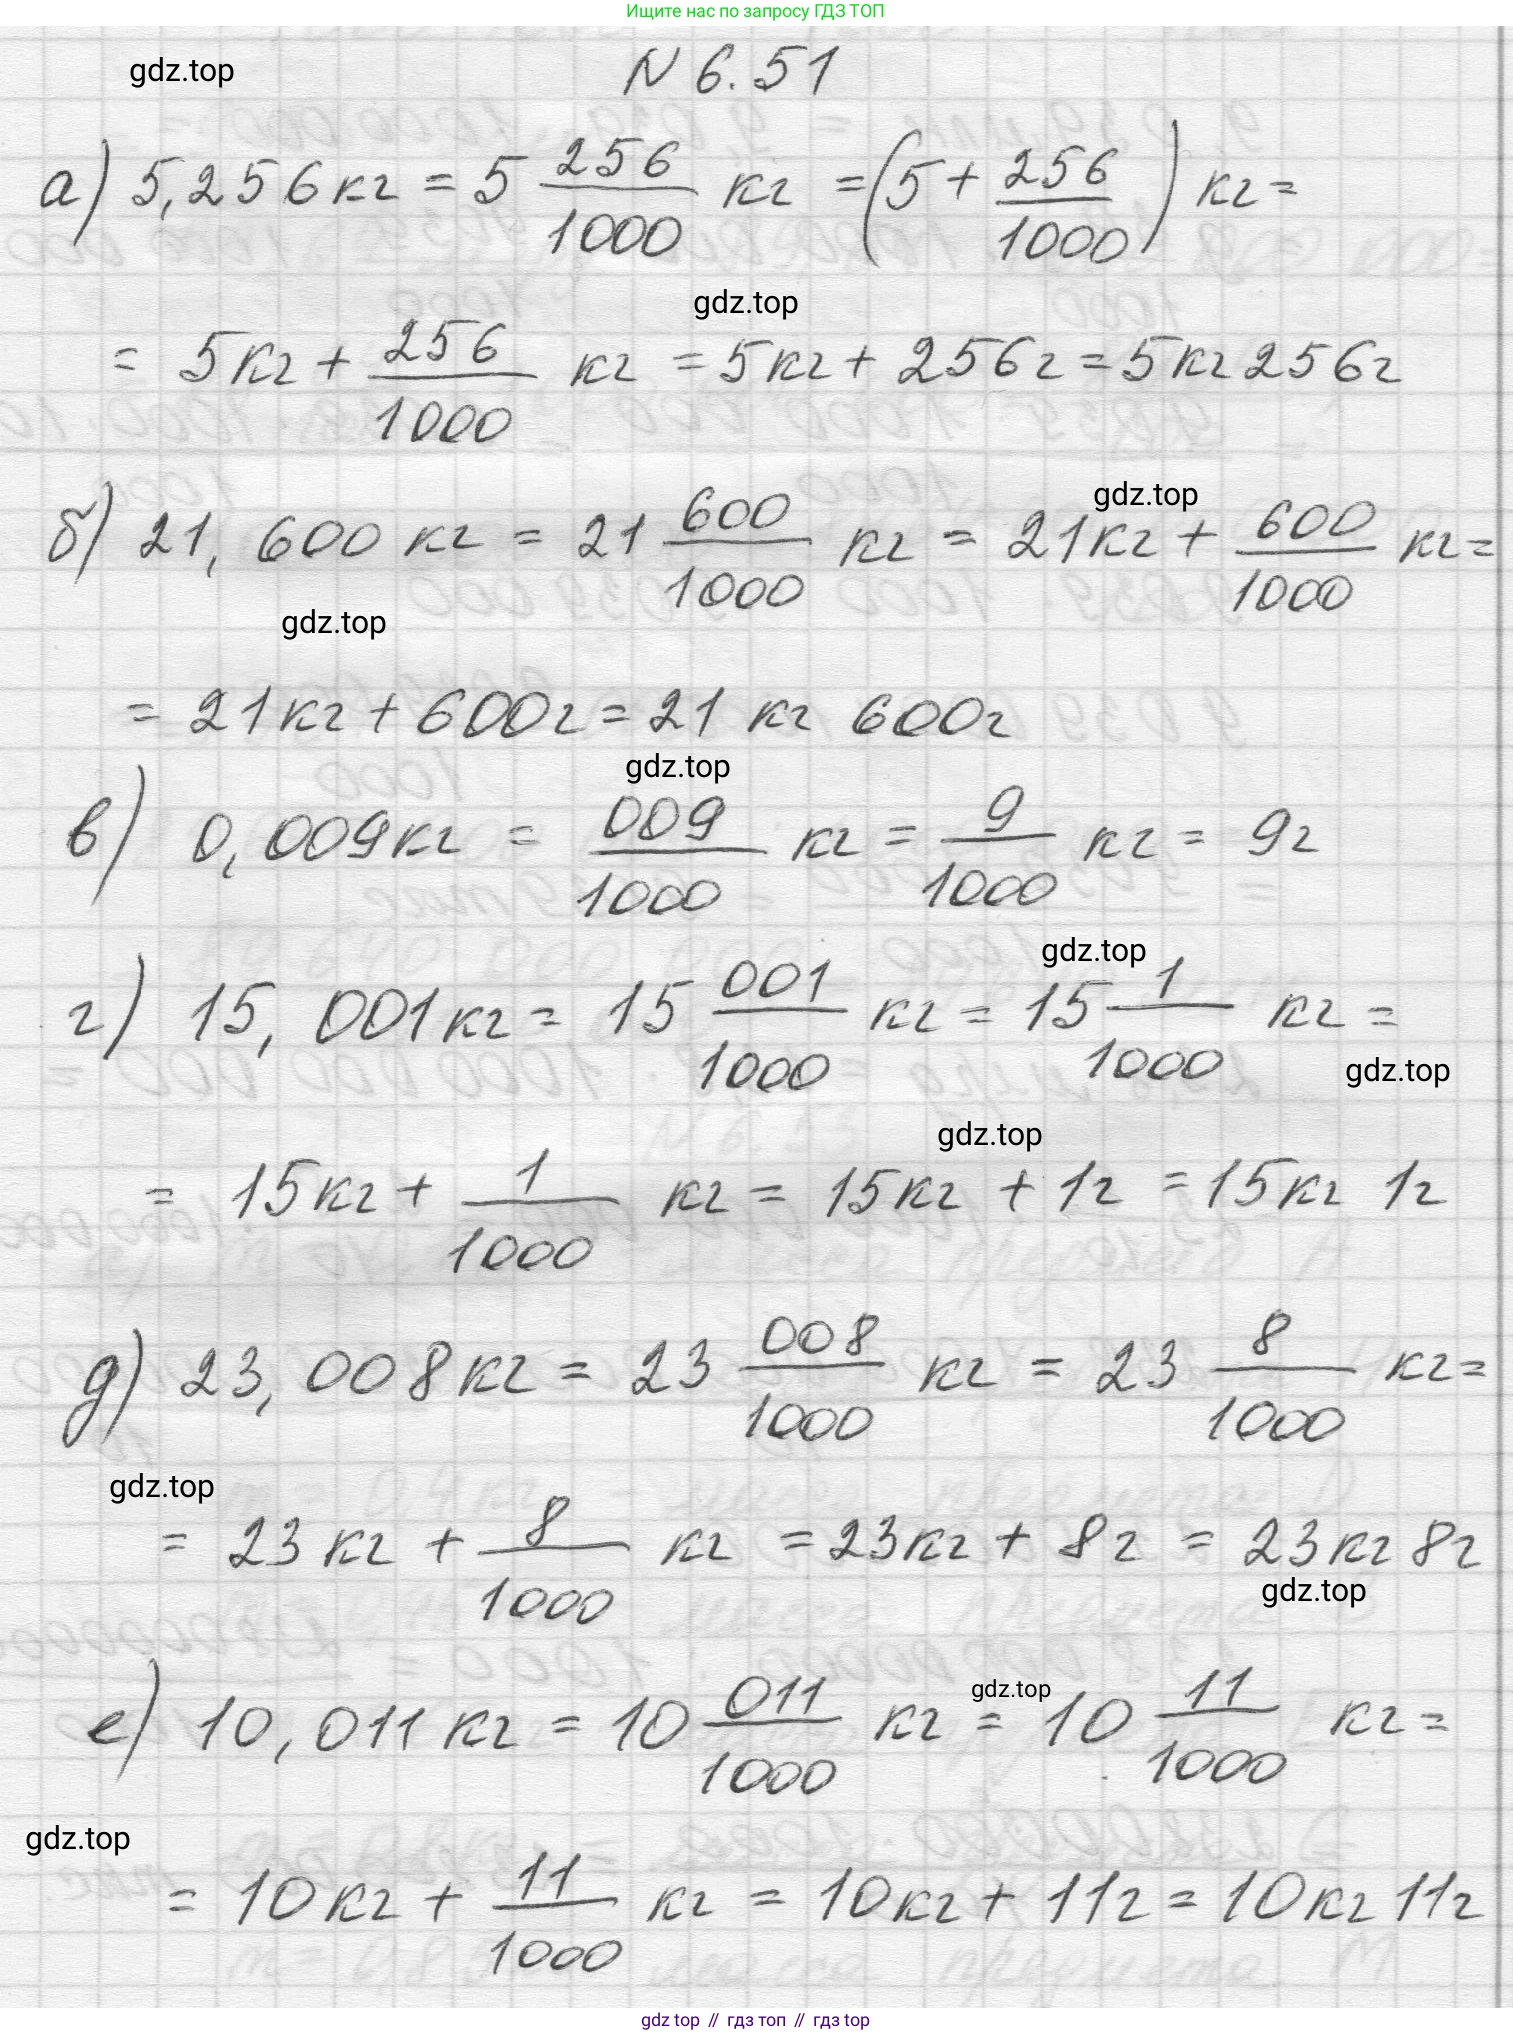 Ищите нас по запросу ГДЗ ТОП
gdz.top
N 6.51
а) 5,256 кг = 5 256/1000 кг = (5 + 256/1000) кг =
gdz.top
= 5 кг + 256/1000 кг = 5 кг + 256 г = 5 кг 256 г
gdz.top
б) 21, 600 кг = 21 600/1000 кг = 21 кг + 600/1000 кг =
gdz.top
= 21 кг + 600 г = 21 кг 600 г
gdz.top
в) 0,009 кг = 009/1000 кг = 9/1000 кг = 9 г
gdz.top
г) 15, 001 кг = 15 001/1000 кг = 15 1/1000 кг =
gdz.top
gdz.top
= 15 кг + 1/1000 кг = 15 кг + 1 г = 15 кг 1 г
д) 23, 008 кг = 23 008/1000 кг = 23 8/1000 кг =
gdz.top
= 23 кг + 8/1000 кг = 23 кг + 8 г = 23 кг 8 г
gdz.top
gdz.top
е) 10, 011 кг = 10 011/1000 кг = 10 11/1000 кг =
gdz.top
= 10 кг + 11/1000 кг = 10 кг + 11 г = 10 кг 11 г
gdz top // гдз топ // гдз top